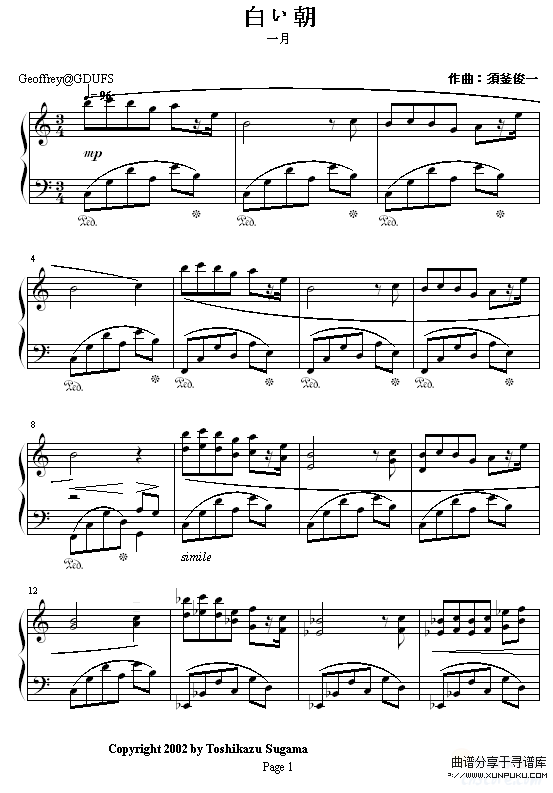 白い朝
一月
Geoffrey@GDUFS
作曲：須釜俊一
♩=96
mp
Ped.
Ped.
4
Ped.
Ped.
Ped.
8
Ped.
simile
12
Copyright 2002 by Toshikazu Sugama
Page 1
曲谱分享于寻谱库
WWW.XUNPUKU.COM